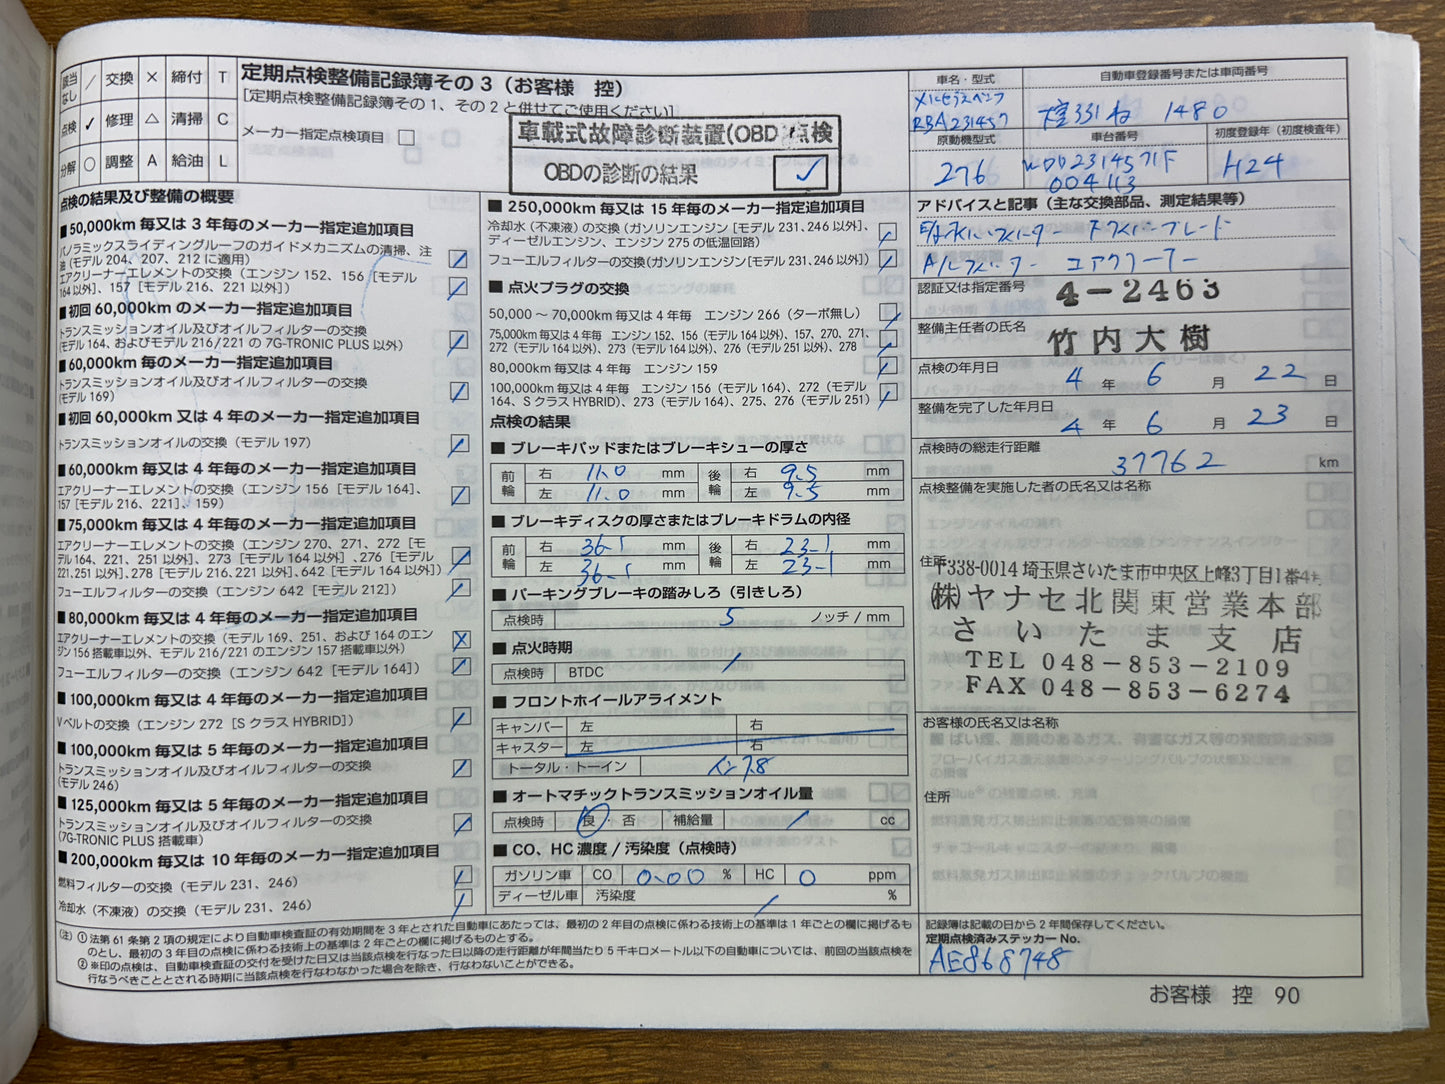 該当なし / 交換 × 締付 T
点検 ✓ 修理 △ 清掃 C
分解 ○ 調整 A 給油 L
定期点検整備記録簿その3（お客様　控）
[定期点検整備記録簿その1、その2と併せてご使用ください]
メーカー指定点検項目 □
車載式故障診断装置(OBD)点検
OBDの診断の結果 ✓
車名・型式
メルセデスベンツ
RBA231457
自動車登録番号または車両番号
331 ね 1480
原動機型式
276
車台番号
WDD2314571F
004113
初度登録年（初度検査年）
H24
点検の結果及び整備の概要
■50,000km 毎又は 3 年毎のメーカー指定追加項目
パノラミックスライディングルーフのガイドメカニズムの清掃、注油（モデル 204、207、212 に適用）
エアクリーナーエレメントの交換（エンジン 152、156［モデル 164以外］、157［モデル 216、221 以外］）
■初回 60,000km のメーカー指定追加項目
トランスミッションオイル及びオイルフィルターの交換
(モデル 164、およびモデル 216/221 の 7G-TRONIC PLUS 以外)
■60,000km 毎のメーカー指定追加項目
トランスミッションオイル及びオイルフィルターの交換
(モデル 169)
■初回 60,000km 又は 4 年のメーカー指定追加項目
トランスミッションオイルの交換（モデル 197）
■60,000km 毎又は 4 年毎のメーカー指定追加項目
エアクリーナーエレメントの交換（エンジン 156［モデル 164］、
157［モデル 216、221］、159）
■75,000km 毎又は 4 年毎のメーカー指定追加項目
エアクリーナーエレメントの交換（エンジン 270、271、272［モ
デル 164、221、251 以外］、273［モデル 164 以外］、276［モデル
221,251 以外］、278［モデル 216、221以外］、642［モデル 164 以外］）
フューエルフィルターの交換（エンジン 642［モデル 212］）
■80,000km 毎又は 4 年毎のメーカー指定追加項目
エアクリーナーエレメントの交換（モデル 169、251、および 164 のエン
ジン 156 搭載車以外、モデル 216/221 のエンジン 157 搭載車以外）
フューエルフィルターの交換（エンジン 642［モデル 164］）
■100,000km 毎又は 4 年毎のメーカー指定追加項目
Vベルトの交換（エンジン 272［S クラス HYBRID］）
■100,000km 毎又は 5 年毎のメーカー指定追加項目
トランスミッションオイル及びオイルフィルターの交換
(モデル 246)
■125,000km 毎又は 5 年毎のメーカー指定追加項目
トランスミッションオイル及びオイルフィルターの交換
(7G-TRONIC PLUS 搭載車)
■200,000km 毎又は 10 年毎のメーカー指定追加項目
燃料フィルターの交換（モデル 231、246）
冷却水（不凍液）の交換（モデル 231、246）
■250,000km 毎又は 15 年毎のメーカー指定追加項目
冷却水（不凍液）の交換（ガソリンエンジン［モデル 231、246 以外］、
ディーゼルエンジン、エンジン 275 の低温回路）
フューエルフィルターの交換（ガソリンエンジン［モデル 231、246 以外］）
■点火プラグの交換
50,000 ～ 70,000km 毎又は 4 年毎　エンジン 266（ターボ無し）
75,000km 毎又は 4 年毎　エンジン 152、156（モデル 164 以外）、157、270、271、
272（モデル 164 以外）、273（モデル 164 以外）、276（モデル 251 以外）、278
80,000km 毎又は 4 年毎　エンジン 159
100,000km 毎又は 4 年毎　エンジン 156（モデル 164）、272（モデル
164、S クラス HYBRID）、273（モデル 164）、275、276（モデル 251）
点検の結果
■ブレーキパッドまたはブレーキシューの厚さ
前輪 右 11.0 mm 後輪 右 9.5 mm
左 11.0 mm 左 9.5 mm
■ブレーキディスクの厚さまたはブレーキドラムの内径
前輪 右 36.1 mm 後輪 右 23.1 mm
左 36.1 mm 左 23.1 mm
■パーキングブレーキの踏みしろ（引きしろ）
点検時 5 ノッチ / mm
■点火時期
点検時 BTDC /
■フロントホイールアライメント
キャンバー 左 右
キャスター 左 右
トータル　トーイン イン 7.8
■オートマチックトランスミッションオイル量
点検時 良・否 補給量 / cc
■CO、HC 濃度 / 汚染度（点検時）
ガソリン車 CO 0.00 % HC 0 ppm
ディーゼル車 汚染度 / %
アドバイスと記事（主な交換部品、測定結果等）
A/Cフィルター　エアクリーナー
認証又は指定番号 4-2463
整備主任者の氏名 竹内大樹
点検の年月日 4 年 6 月 22 日
整備を完了した年月日 4 年 6 月 23 日
点検時の総走行距離 37762 km
点検整備を実施した者の氏名又は名称
住所
〒338-0014 埼玉県さいたま市中央区上峰3丁目1番4号
㈱ヤナセ北関東営業本部
さいたま支店
TEL 048-853-2109
FAX 048-853-6274
お客様の氏名又は名称
住所
（注）① 法第 61 条第 2 項の規定により自動車検査証の有効期間を 3 年とされた自動車にあたっては、最初の 2 年目の点検に係わる技術上の基準は 1 年ごとの欄に掲げるも
のとし、最初の 3 年目の点検に係わる技術上の基準は 2 年ごとの欄に掲げるものとする。
② ※印の点検は、自動車検査証の交付を受けた日又は当該点検を行なった日以降の走行距離が年間当たり 5 千キロメートル以下の自動車については、前回の当該点検を
行なうべきこととされる時期に当該点検を行なわなかった場合を除き、行なわないことができる。
記録簿は記載の日から 2 年間保存してください。
定期点検済みステッカー No.
AE868748
お客様　控　90